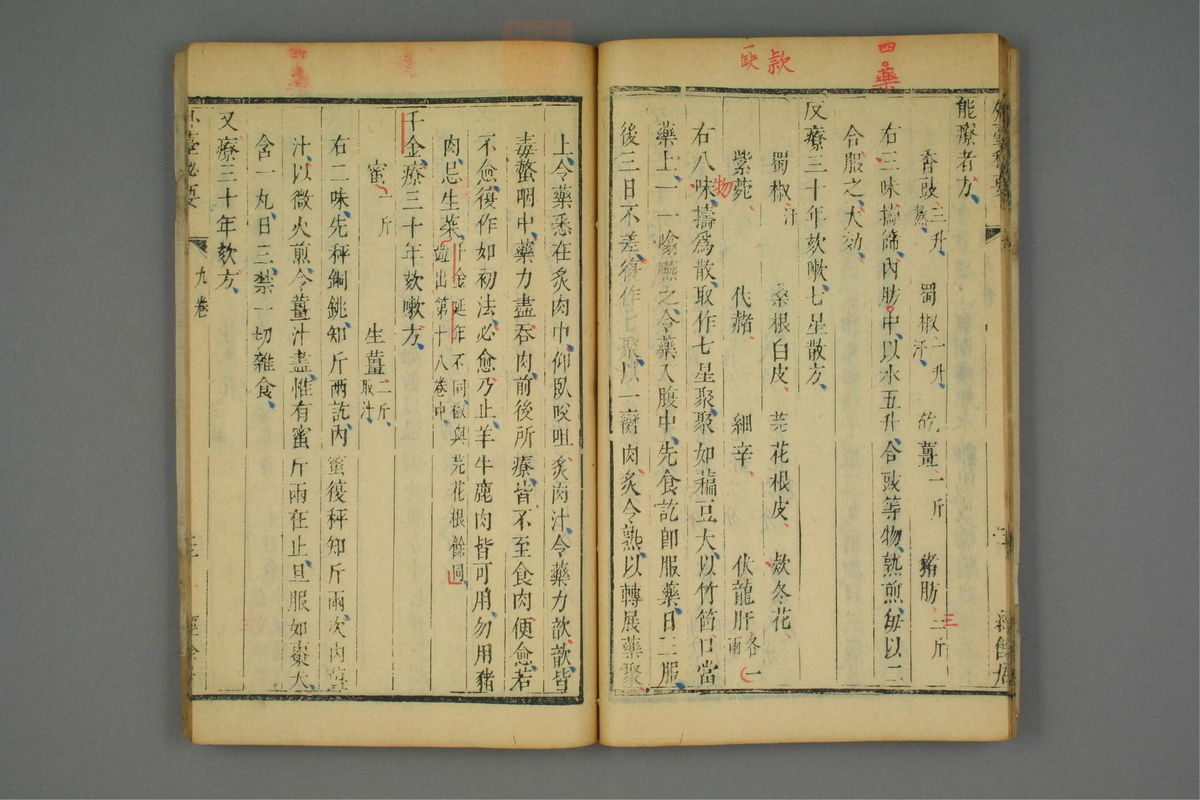 四藥
款
一缺
能療者方
香豉三升蒸 蜀椒一升汗 乾薑一斤 豬肪三斤
右三味擣篩內肪中以水五升合豉等物熟煎每以二
合服之大効
反療三十年欬嗽七星散方
蜀椒汗 桑根白皮 芫花根皮 款冬花
紫菀 代赭 細辛 伏龍肝各一兩
右八味物擣爲散取作七星聚聚如藊豆大以竹筒口當
藥上一一噏嚥之令藥入腹中先食訖即服藥日三服
後三日不差復作七聚以一臠肉炙令熟以轉展藥聚
上令藥悉在炙肉中仰臥咬咀炙肉汁令藥力歆歆皆
毒螫咽中藥力盡吞肉前後所療皆不至食肉便愈若
不愈復作如初法必愈乃止羊牛鹿肉皆可用勿用豬
肉忌生菜千金延年不同椒與芫花根餘同並出第十八卷中
千金療三十年欬嗽方
蜜一斤 生薑二斤取汁
右二味先秤銅銚知斤兩訖內蜜復秤知斤兩次內薑
汁以微火煎令薑汁盡惟有蜜斤兩在止旦服如棗大
含一丸日三禁一切雜食
又療三十年欬方
外臺秘要 九卷 三 經餘